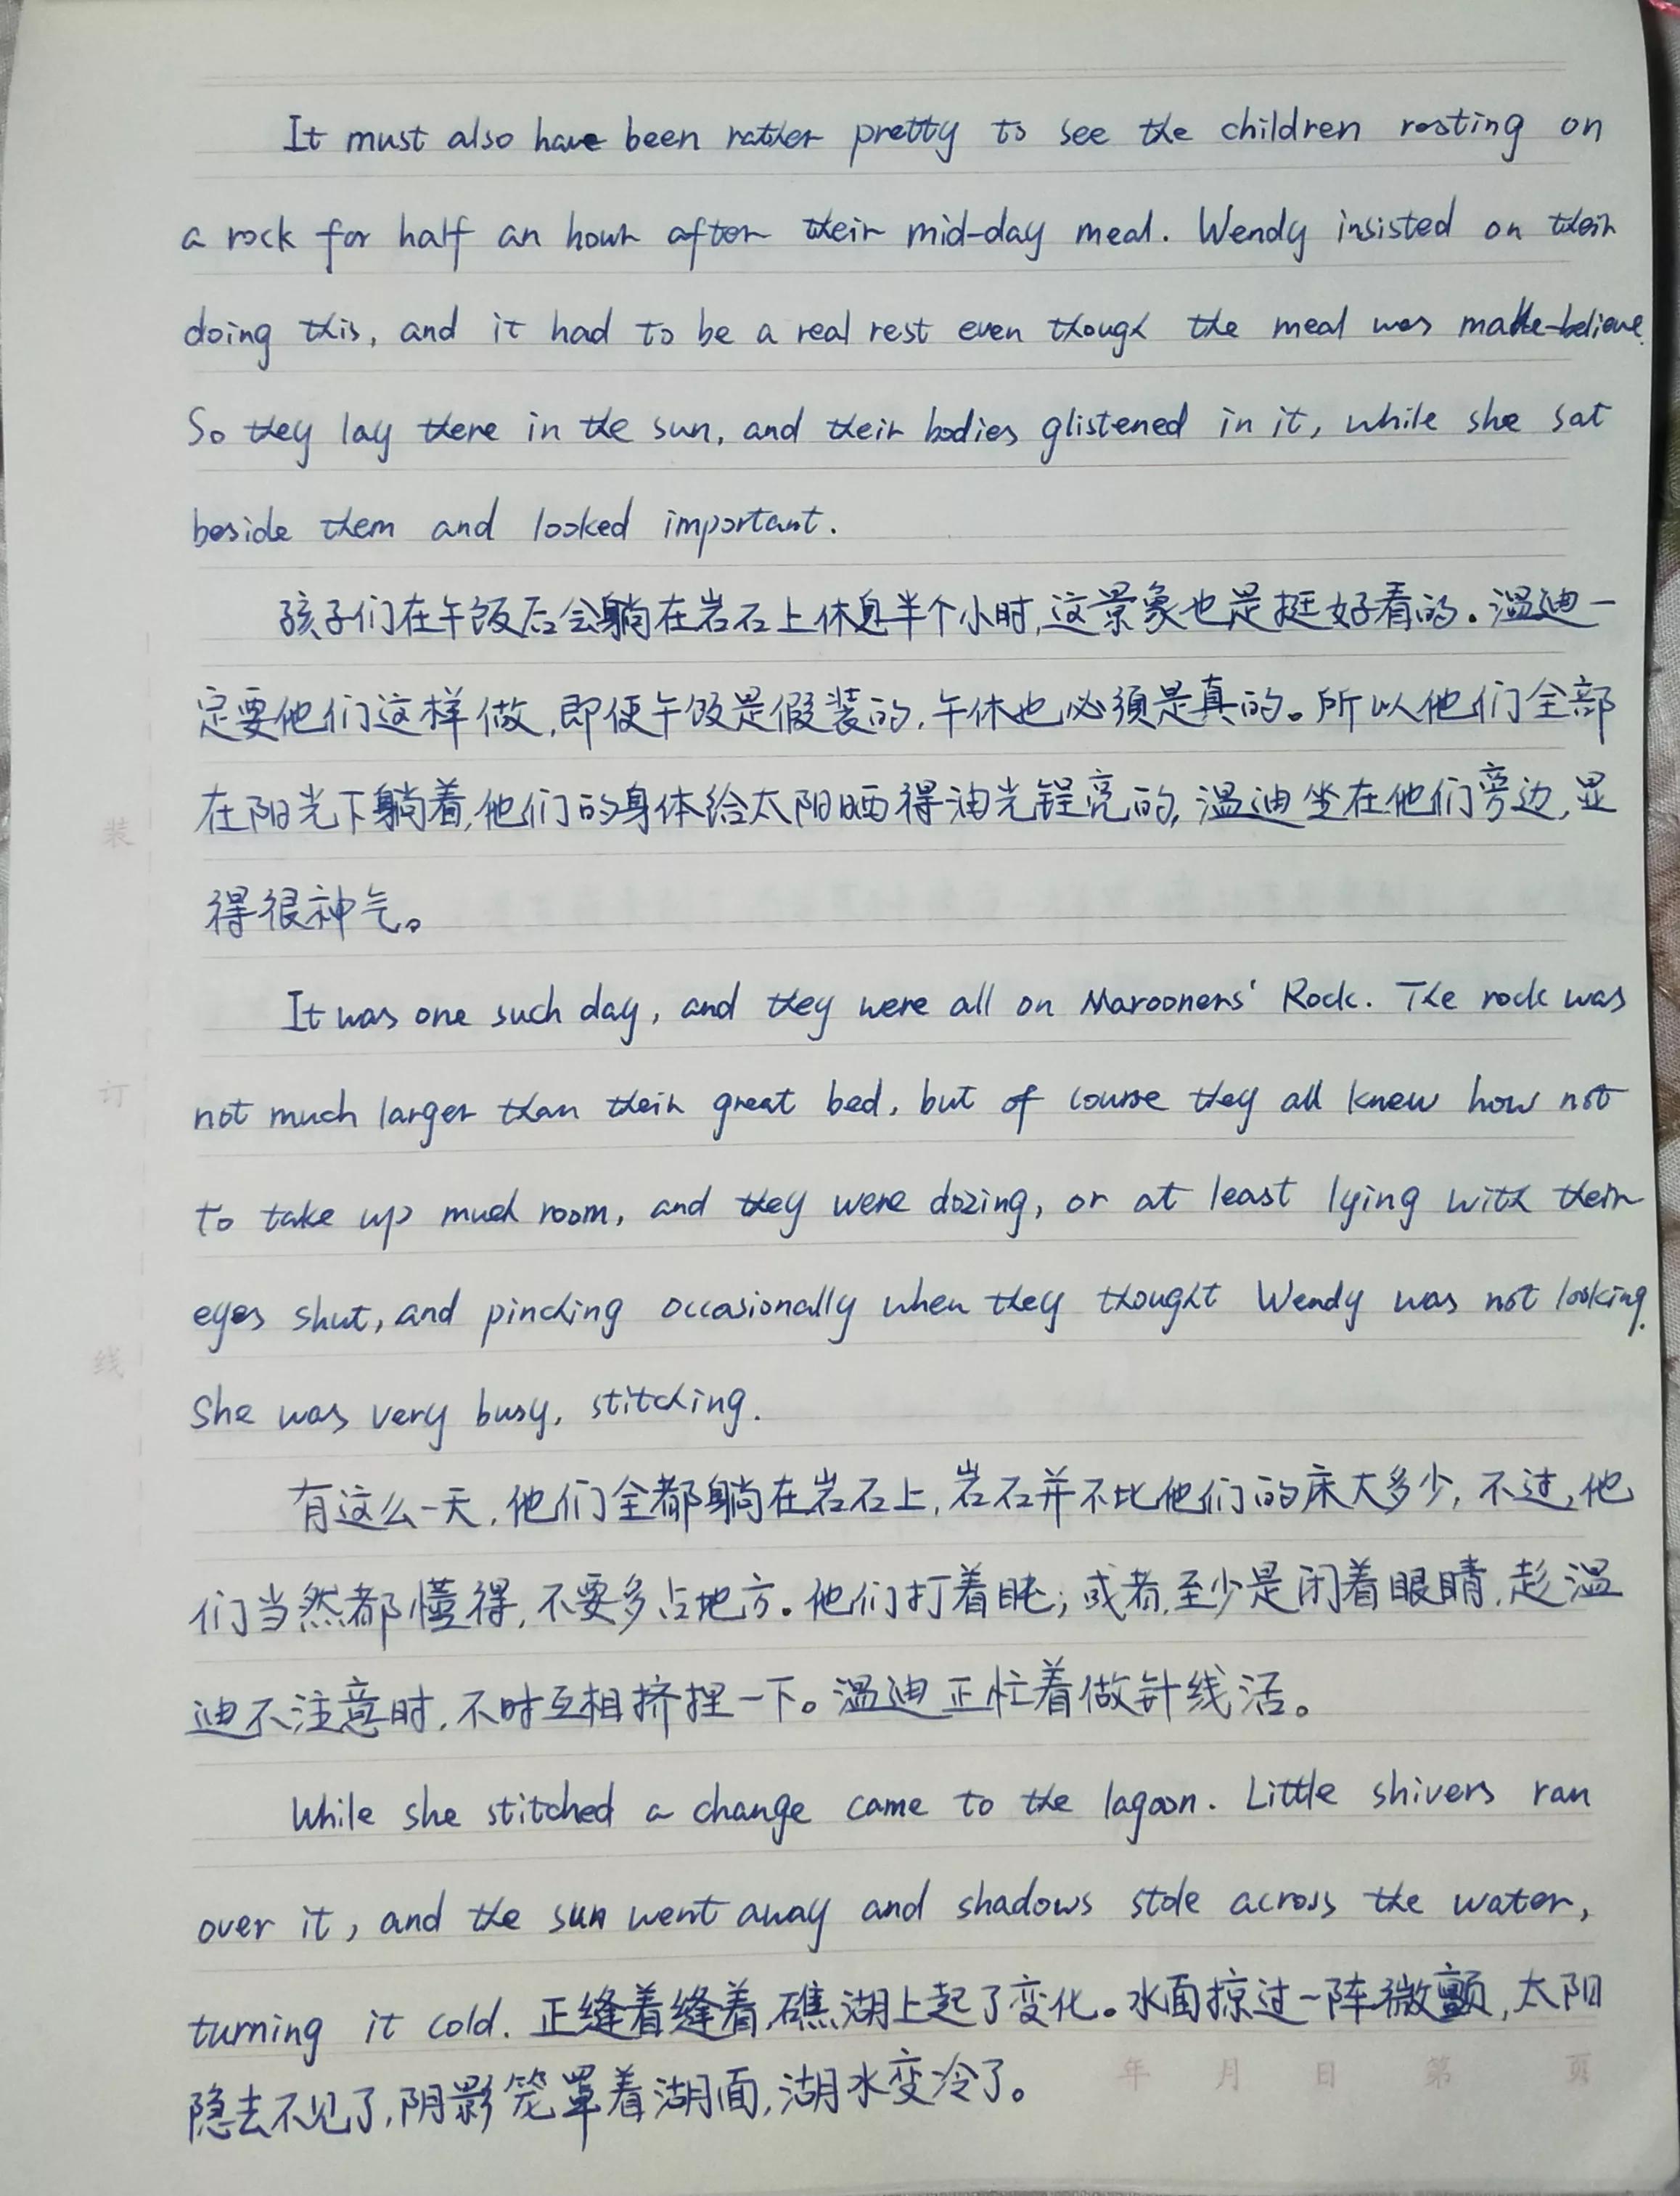 It must also have been rather pretty to see the children resting on
a rock for half an hour after their mid-day meal. Wendy insisted on their
doing this, and it had to be a real rest even though the meal was make-believe.
So they lay there in the sun, and their bodies glistened in it, while she sat
beside them and looked important.
孩子们在午饭后会躺在岩石上休息半个小时,这景象也是挺好看的.温迪一
定要他们这样做,即便午饭是假装的,午休也必须是真的。所以他们全部
在阳光下躺着,他们的身体给太阳晒得油光锃亮的,温迪坐在他们旁边,显
得很神气。
It was one such day, and they were all on Marooners' Rock. The rock was
not much larger than their great bed, but of course they all knew how not
to take up much room, and they were dozing, or at least lying with their
eyes shut, and pinching occasionally when they thought Wendy was not looking.
She was very busy, stitching.
有这么一天,他们全都躺在岩石上,岩石并不比他们的床大多少,不过,他
们当然都懂得,不要多占地方.他们打着盹;或者,至少是闭着眼睛,趁温
迪不注意时,不时互相挤捏一下。温迪正忙着做针线活。
While she stitched a change came to the lagoon. Little shivers ran
over it, and the sun went away and shadows stole across the water,
turning it cold. 正缝着缝着,礁湖上起了变化。水面掠过一阵微颤,太阳
隐去不见了,阴影笼罩着湖面,湖水变冷了。
装
订
线
年 月 日 第 页